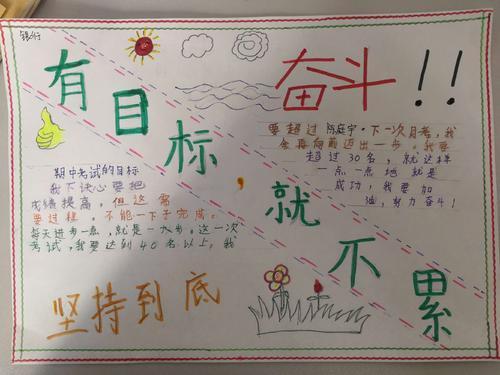 银行
有目标，就不累
奋斗!!
期中考试的目标
我下决心要把
成绩提高，但这需
要过程。不能一下子完成。
每天进步一点，就是一大步。这一次
考试，我要达到40名以上，我
要超过陈庭宇。下一次月考，我
会再向前迈出一步。我要
超过30名，就这样
一点一点地就是
成功，我要加
油，努力奋斗!
坚持到底